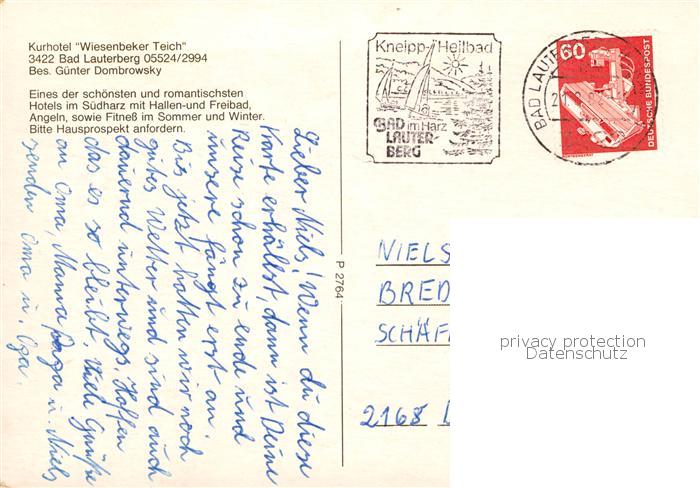 Kurhotel "Wiesenbeker Teich"
3422 Bad Lauterberg 05524/2994
Bes. Günter Dombrowsky
Eines der schönsten und romantischsten
Hotels im Südharz mit Hallen-und Freibad,
Angeln, sowie Fitneß im Sommer und Winter.
Bitte Hausprospekt anfordern.
Lieber Niels! Wenn du diese
Karte erhällst, dann ist Deine
Reise schon zu ende und
unsere fängt erst an.
Bis jetzt hatten wir noch
gutes Wetter und sind auch
dauernd unterwegs. Hoffen
das es so bleibt. Viele Grüße
an Oma, Mama Papa u. Niels
senden Oma u. Opa.
P 2764
Kneipp-Heilbad
BAD im Harz
LAUTER-
BERG
BAD LAUTE
60
DEUTSCHE BUNDESPOST
NIELS
BRED
SCHÄF
2168
privacy protection
Datenschutz